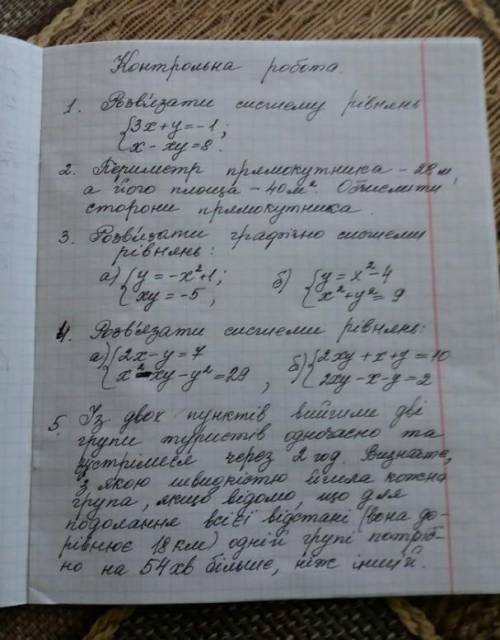 Контрольна робота.
1. Розв'язати систему рівнянь
{3x+y=-1;
{x-xy=8.
2. Периметр прямокутника - 28 м,
а його площа - 40 м². Обчислити
сторони прямокутника.
3. Розв'язати графічно системи
рівнянь:
а) {y=-x²+1; б) {y=x²-4
{xy=-5; {x²+y²=9
4. Розв'язати системи рівнянь:
а) {2x-y=7 б) {2xy+x+y=10
{x²-xy-y²=29, {2xy-x-y=2
5. Із двох пунктів вийшли дві
групи туристів одночасно та
зустрілися через 2 год. Визначте,
з якою швидкістю йшла кожна
група, якщо відомо, що для
подолання всієї відстані (вона до-
рівнює 18 км) одній групі потріб-
но на 54 хв більше, ніж іншій.